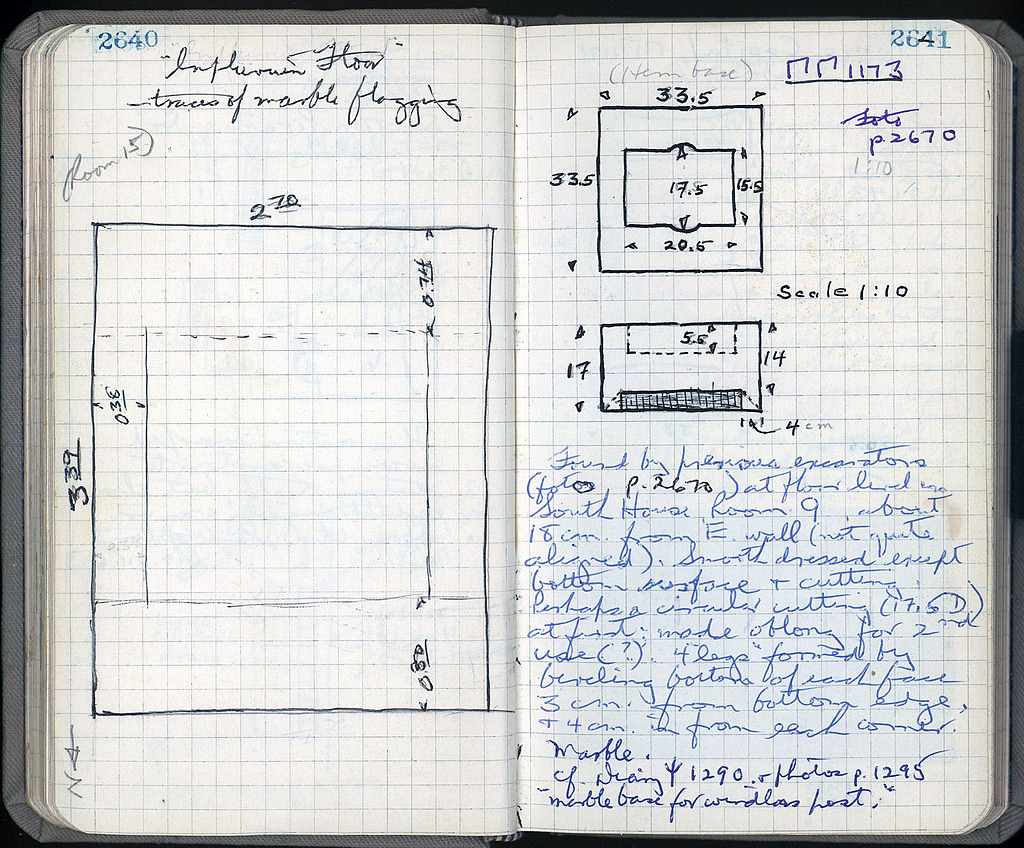 2640
"Impluvium Floor"
—traces of marble flagging
(Room 15)
2.70
0.74
0.38
3.39
0.80
N
2641
(Herm base)
ΠΠ 1173
foto
p.2670
1:10
33.5
33.5
17.5
15.5
20.5
Scale 1:10
5.5
17
14
4 cm
Found by previous excavators
(foto p.2670) at floor level in
South House Room 9, about
18 cm. from E. wall (not quite
aligned). Smooth dressed except
bottom surface + cutting.
Perhaps a circular cutting (17.5 D.)
at first; made oblong for 2nd
use (?). 4 "legs" formed by
beveling bottom of each face
3 cm. from bottom edge,
+ 4 cm. in from each corner.
Marble.
cf. Diary Ψ 1290 + photos p.1295
"marble base for windlass post."